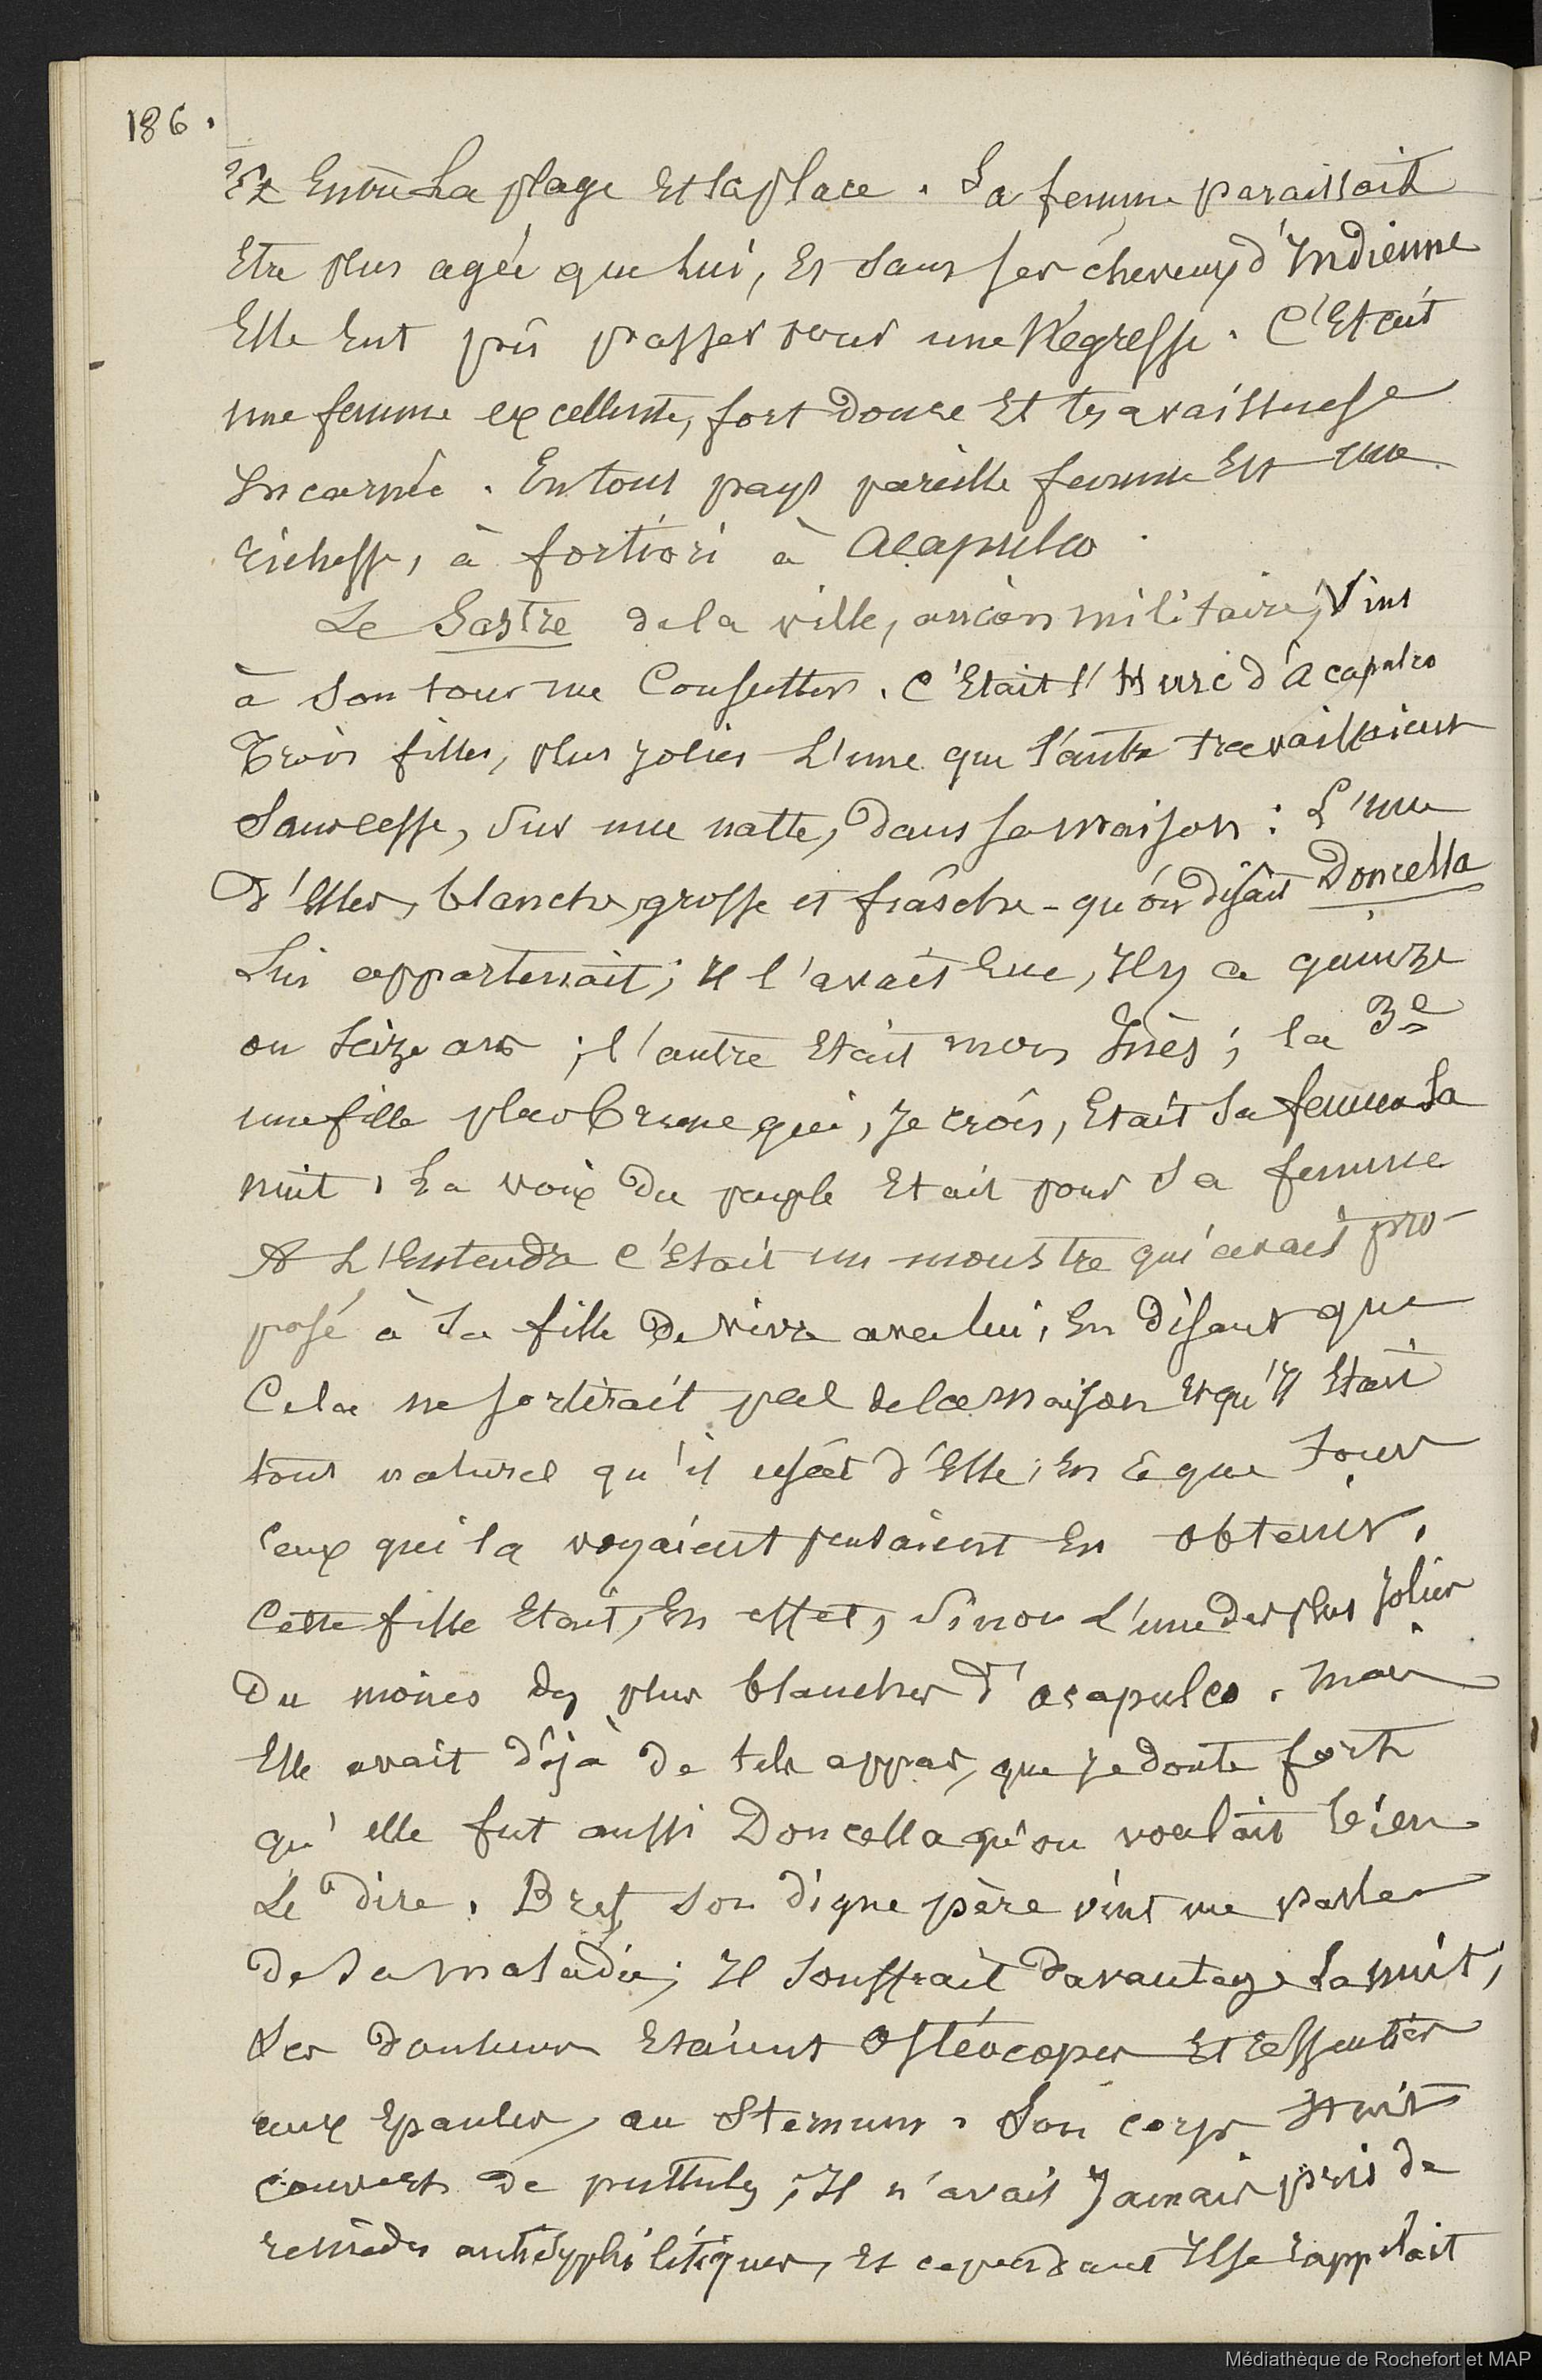 186.
Et Entre La plage Et la place. La femme paraissait
Etre plus agée que lui, Et sans ses cheveux d'Indienne
Elle Eut pû passer pour une Négresse. C'Etait
une femme excellente, fort douce Et travailleuse
Incarnée. En tout pays pareille femme Est une
richesse, à fortiori à Acapulco.
Le Sastre de la ville, ancien militaire, Vint
à son tour me Consulter. C'Etait l' d'Acapulco
Trois filles, plus jolies L'une que l'autre travaillaient
Sans cesse, Sur une natte, dans sa maison : L'une
d'Elles, blanche, grosse et fraîche - qu'on disait Doncella
Lui appartenait ; Il l'avait Eue, Il y a quinze
ou Seize ans ; l'autre Etait mon Inès ; la 3e
une fille plus brune qui, Je crois, Etait Sa femme La
nuit. La voix du peuple Etait pour Sa femme
A L'Entendre C'Etait un monstre qui avait pro-
posé à Sa fille De vivre avec lui, En disant que
Cela ne sortirait pas de la maison Et qu'Il Etait
tout naturel qu'il usât d'Elle, En ce que Tous
Ceux qui la voyaient pensaient En obtenir.
Cette fille Etait, En effet, Sinon L'une des plus Jolies
Du moins des plus blanches d'acapulco. Mais
Elle avait déjà de tels appas, que Je doute fort
qu'elle fut aussi Doncella qu'on voulait bien
Le dire. Bref Son digne père vint me parler
De Sa maladie ; Il Souffrait davantage La nuit,
Ses douleurs Etaient Ostéocopes Et ressenties
aux Epaules, au Sternum. Son corps Etait
couvert de pustules, Il n'avait Jamais pris de
remèdes antisyphilitiques, Et cependant Il se rappelait
Médiathèque de Rochefort et MAP